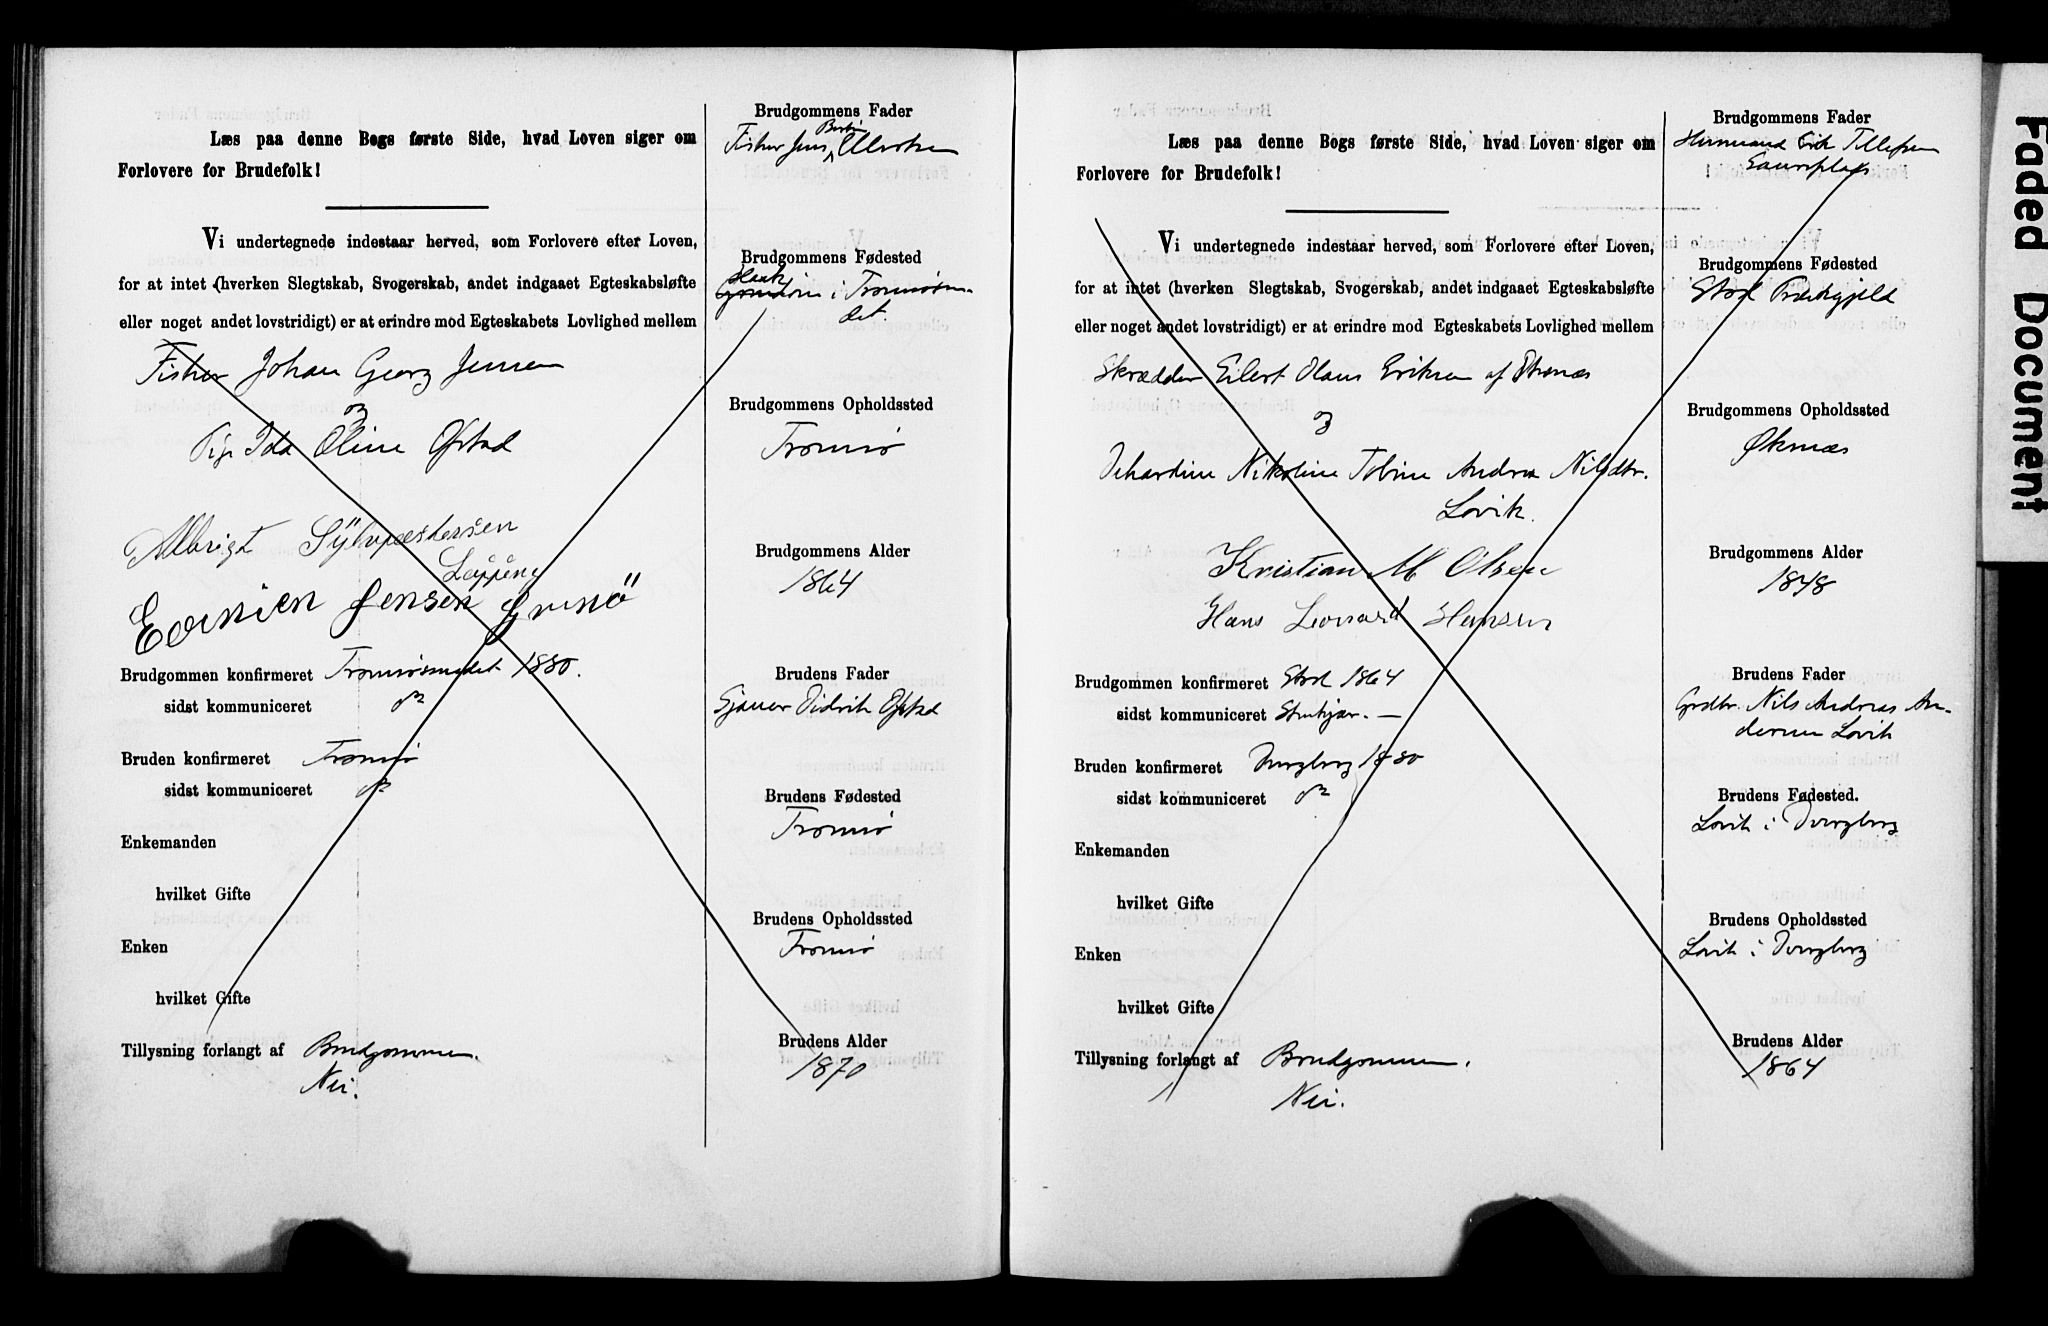 Læs paa denne Bogs første Side, hvad Loven siger om
Forlovere for Brudefolk!
Vi undertegnede indestaar herved, som Forlovere efter Loven,
for at intet (hverken Slegtskab, Svogerskab, andet indgaaet Egteskabsløfte
eller noget andet lovstridigt) er at erindre mod Egteskabets Lovlighed mellem
Fisker Johan Georg Jensen
og
Pige Ida Oline Ofstad
Albrigt Sÿlvpæstersen
Edenien Jensen
Brudgommen konfirmeret Tromsøsundet 1880.
sidst kommuniceret
Bruden konfirmeret Tromsø
sidst kommuniceret
Enkemanden
hvilket Gifte
Enken
hvilket Gifte
Tillysning forlangt af Brudgommen.
Nei.
Brudgommens Fader
Fisker Jens
Brudgommens Fødested
i Tromsøsun-
det.
Brudgommens Opholdssted
Tromsø
Brudgommens Alder
1864
Brudens Fader
Sjauer Didrik Ofstad
Brudens Fødested
Tromsø
Brudens Opholdssted
Tromsø
Brudens Alder
1870
Læs paa denne Bogs første Side, hvad Loven siger om
Forlovere for Brudefolk!
Vi undertegnede indestaar herved, som Forlovere efter Loven,
for at intet (hverken Slegtskab, Svogerskab, andet indgaaet Egteskabsløfte
eller noget andet lovstridigt) er at erindre mod Egteskabets Lovlighed mellem
Skrædder Eilert Olaus Eriksen af Øksnæs
og
Nikoline Tobine Andrea Nilsdtr.
Lovik.
Kristian M Olsen
Hans Leonard Hansen
Brudgommen konfirmeret Stod 1864
sidst kommuniceret Stenkjær. —
Bruden konfirmeret Dverberg 1880
sidst kommuniceret
Enkemanden
hvilket Gifte
Enken
hvilket Gifte
Tillysning forlangt af Brudgommen.
Nei.
Brudgommens Fader
Husmand Erik Tillefsen
Brudgommens Fødested
Stod Præstegjeld
Brudgommens Opholdssted
Øksnæs
Brudgommens Alder
1848
Brudens Fader
Grdbr. Nils Andreas An-
dersen Lovik
Brudens Fødested.
Lovik i Dverberg
Brudens Opholdssted
Lovik i Dverberg
Brudens Alder
1864
Faded Document